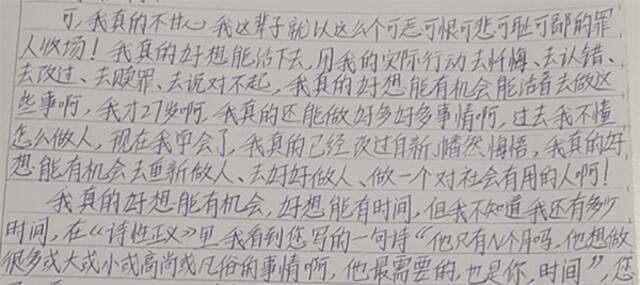 可,我真的不甘心我这辈子就以这么个可恶可恨可悲可耻可鄙的罪
人收场!我真的好想能活下去,用我的实际行动去忏悔、去认错、
去改过、去赎罪、去说对不起,我真的好想能有机会能活着去做这
些事啊,我才27岁啊,我真的还能做好多好多事情啊,过去我不懂
怎么做人,现在我学会了,我真的已经改过自新、幡然悔悟,我真的好
想能有机会去重新做人、去好好做人、做一个对社会有用的人啊!
我真的好想能有机会,好想能有时间,但我不知道我还有多少
时间,在《诗性正义》里我看到您写的一句诗“他只有N个月吗,他想做
很多或大或小或高尚或凡俗的事情啊,他最需要的,也是你,时间”,您